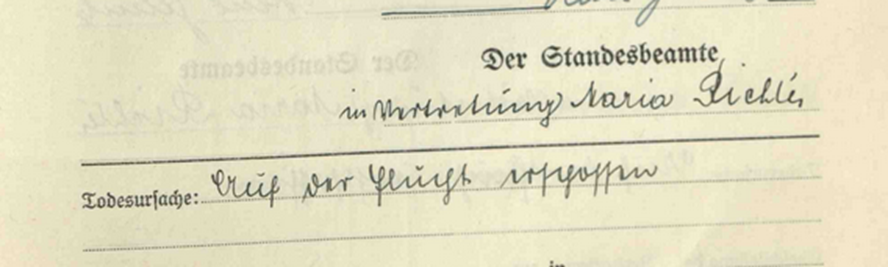 Der Standesbeamte,
in Vertretung Maria Richter
Todesursache: Auf der Flucht erschossen
in